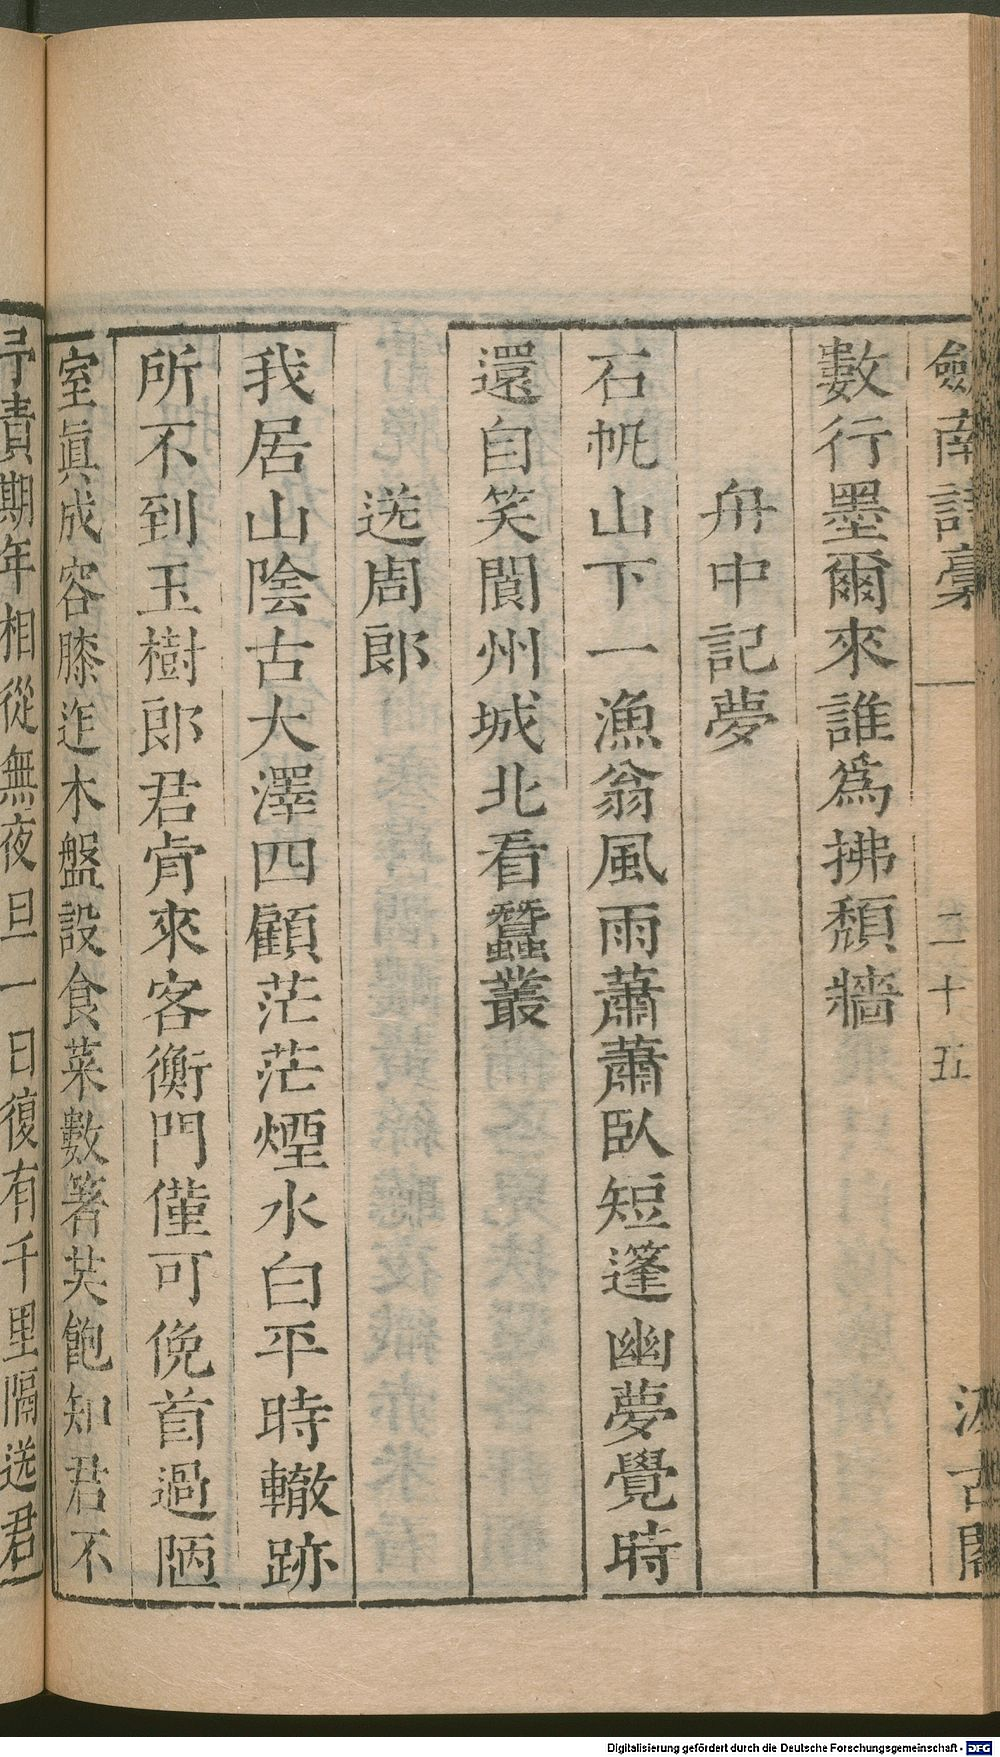 劍南詩稾 一 二十五 汲古閣
數行墨爾來誰爲拂頹牆
舟中記夢
石帆山下一漁翁風雨蕭蕭臥短篷幽夢覺時
還自笑閬州城北看蠶叢
送周郎
我居山陰古大澤四顧茫茫煙水白平時轍跡
所不到玉樹郎君肯來客衡門僅可俛首過陋
室眞成容膝迮木盤設食菜數箸英飽知君不
予責期年相從無夜旦一日復有千里隔送君
Digitalisierung gefördert durch die Deutsche Forschungsgemeinschaft - DFG